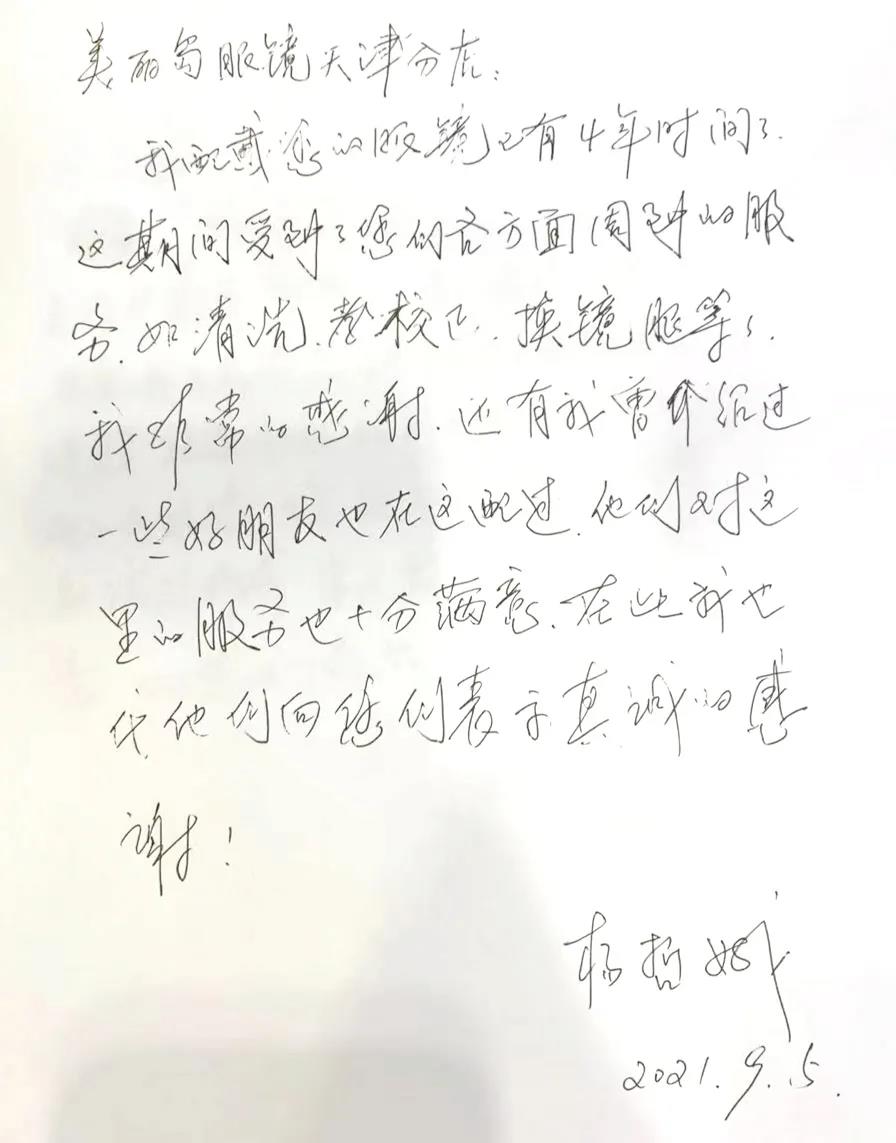 美丽岛眼镜天津分店:
我配戴您的眼镜已有4年时间了.
这期间受到了您们各方面周到的服
务.如清洗、校正、换镜腿等等.
我非常的感谢.还有我曾介绍过
一些好朋友也在这配过.他们对这
里的服务也十分满意.在此我也
代他们向您们表示真诚的感
谢!
杨哲
2021.9.5.